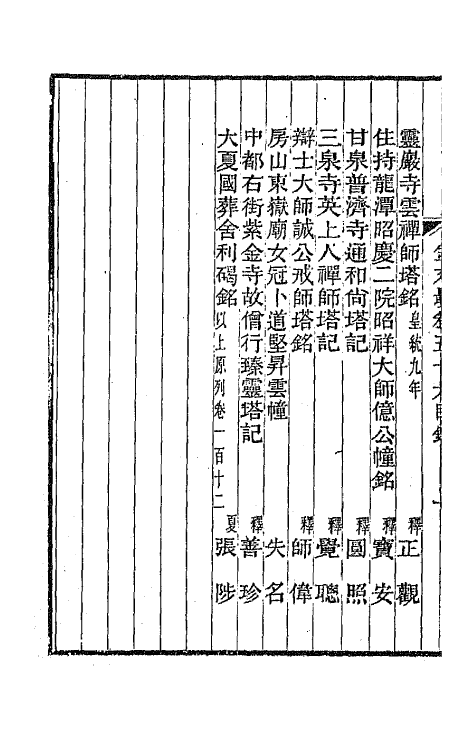 靈巖寺雲禪師塔銘 皇統九年 釋正觀
住持龍潭昭慶二院昭祥大師億公幢銘 釋寶安
甘泉普濟寺通和尙塔記 釋圓照
三泉寺英上人禪師塔記 釋覺聰
辯士大師誠公戒師塔銘 釋師偉
房山東嶽廟女冠卜道堅昇雲幢 失名
中都右街紫金寺故僧行臻靈塔記 釋善珍
大夏國葬舍利碣銘 以上原列卷一百十二 夏張陟